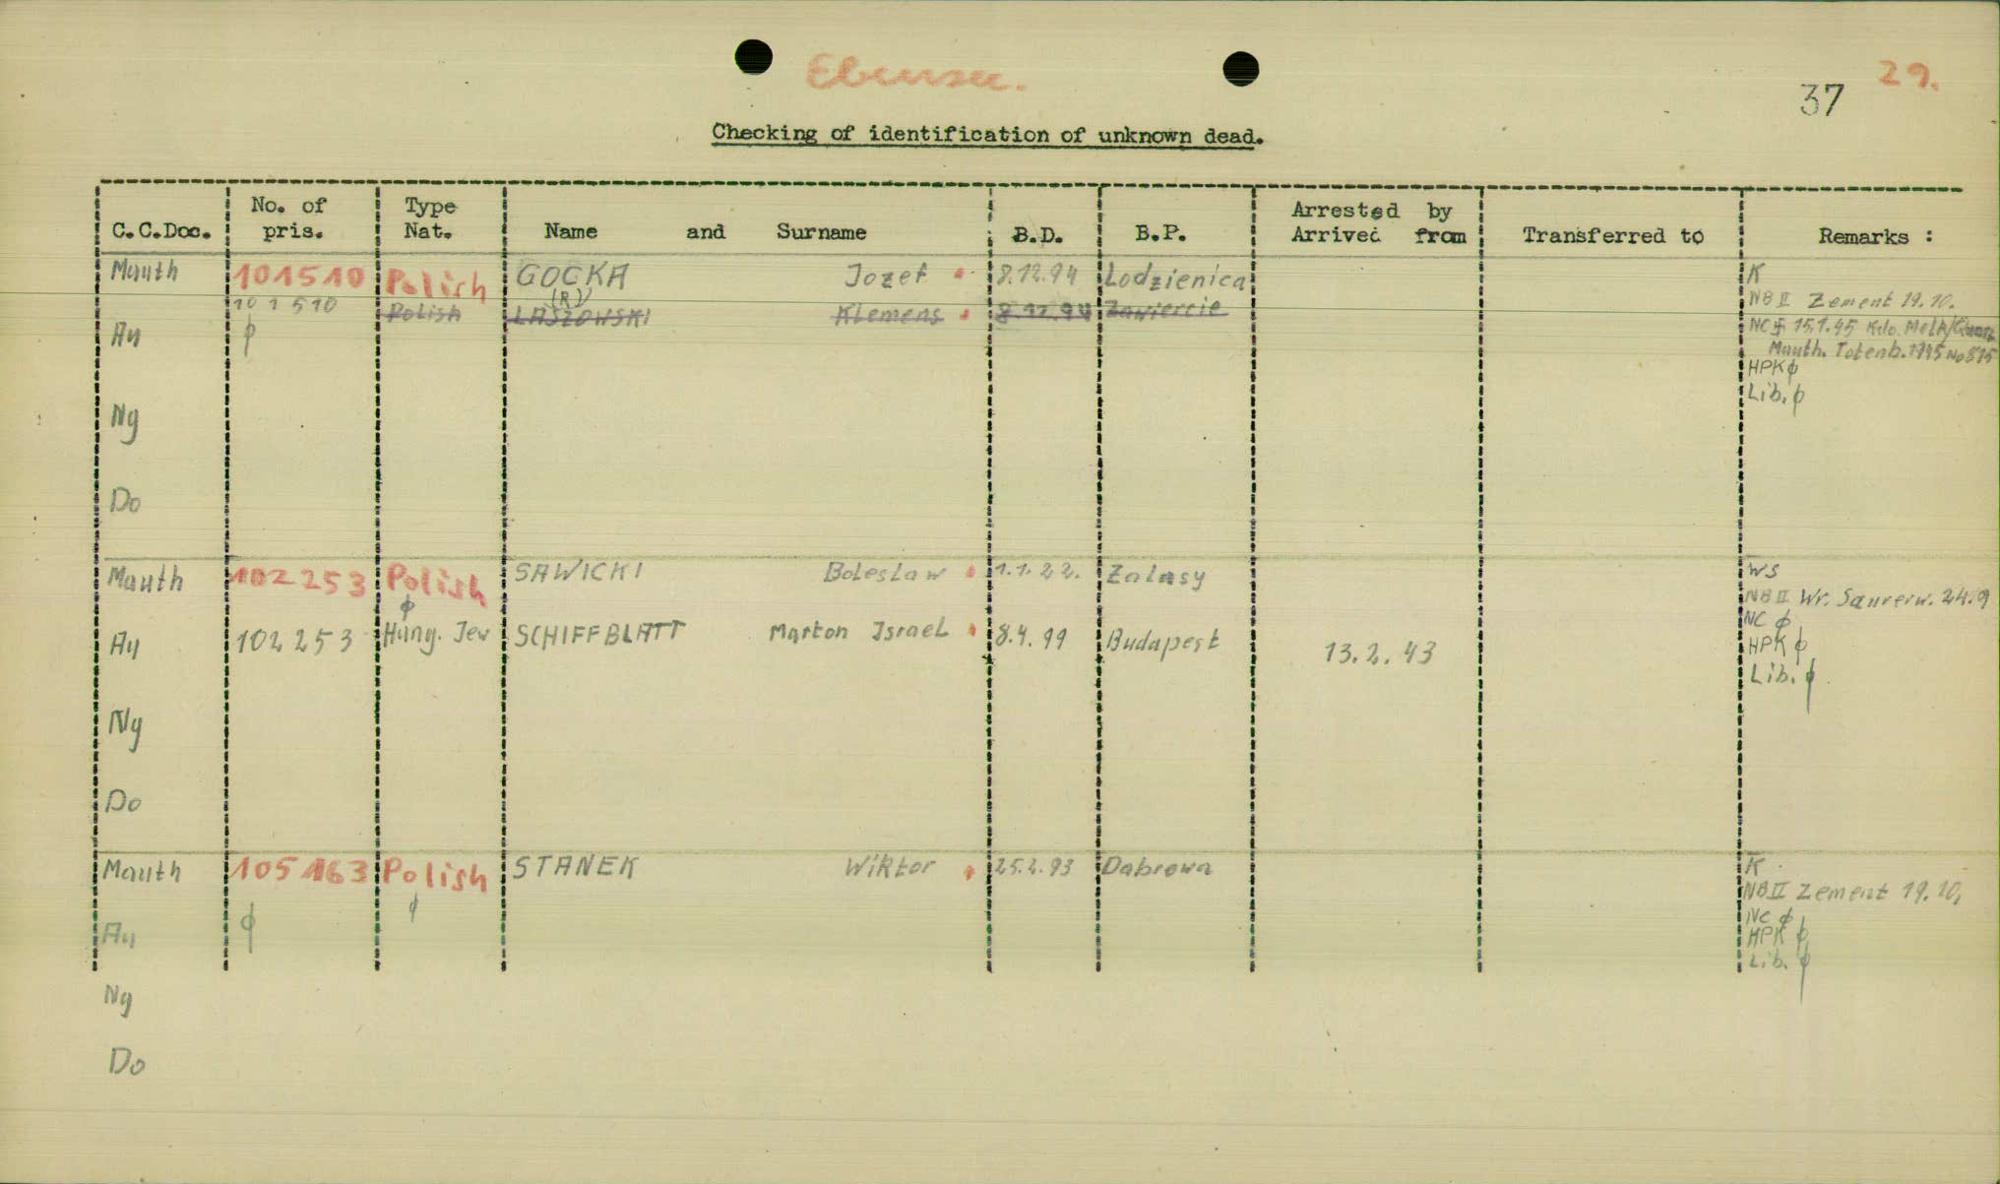 Ebensee.
29.
37
Checking of identification of unknown dead.
C.C.Doc. No. of pris. Type Nat. Name and Surname B.D. B.P. Arrested by Arrived from Transferred to Remarks :
Mauth 101510 Polish GOCKA Jozef 8.12.94 Lodzienica K
(R)
101510 Polish LASZOWSKI Klemens 8.12.94 Zawiercie NB II Zement 19.10.
Au ϕ NC 15.1.45 Kdo. Melk/
Mauth. Totenb. 1945 No
HPK ϕ
Lib. ϕ
Ng
Do
Mauth 102253 Polish SAWICKI Boleslaw 1.1.22. Zalasy WS
ϕ NB II Wr. Saurerw. 24.9
Au 102253 Hung. Jew SCHIFFBLATT Marton Israel 8.4.99 Budapest 13.2.43 NC ϕ
HPK ϕ
Lib. ϕ
Ng
Do
Mauth 105163 Polish STANEK Wiktor 25.2.93 Dabrowa K
ϕ NB II Zement 19.10.
Au ϕ NC ϕ
HPK ϕ
Lib. ϕ
Ng
Do